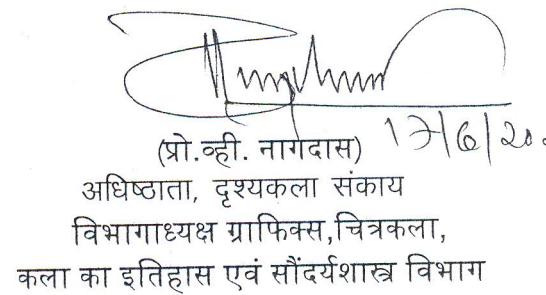 17/6/20.
(प्रो.व्ही. नागदास)
अधिष्ठाता, दृश्यकला संकाय
विभागाध्यक्ष ग्राफिक्स,चित्रकला,
कला का इतिहास एवं सौंदर्यशास्त्र विभाग